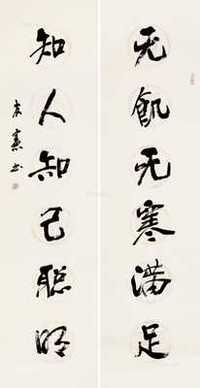 无飢无寒满足
知人知己聪明